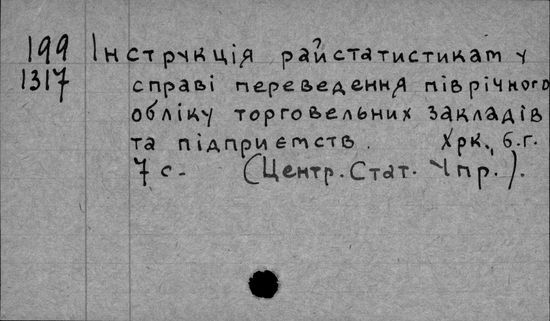 199 Інструкція райстатистикам у
1317 справі переведення піврічного
обліку торговельних закладів
та підприємств. Хрк., б.г.
7 с. (Центр. Стат. Упр.).